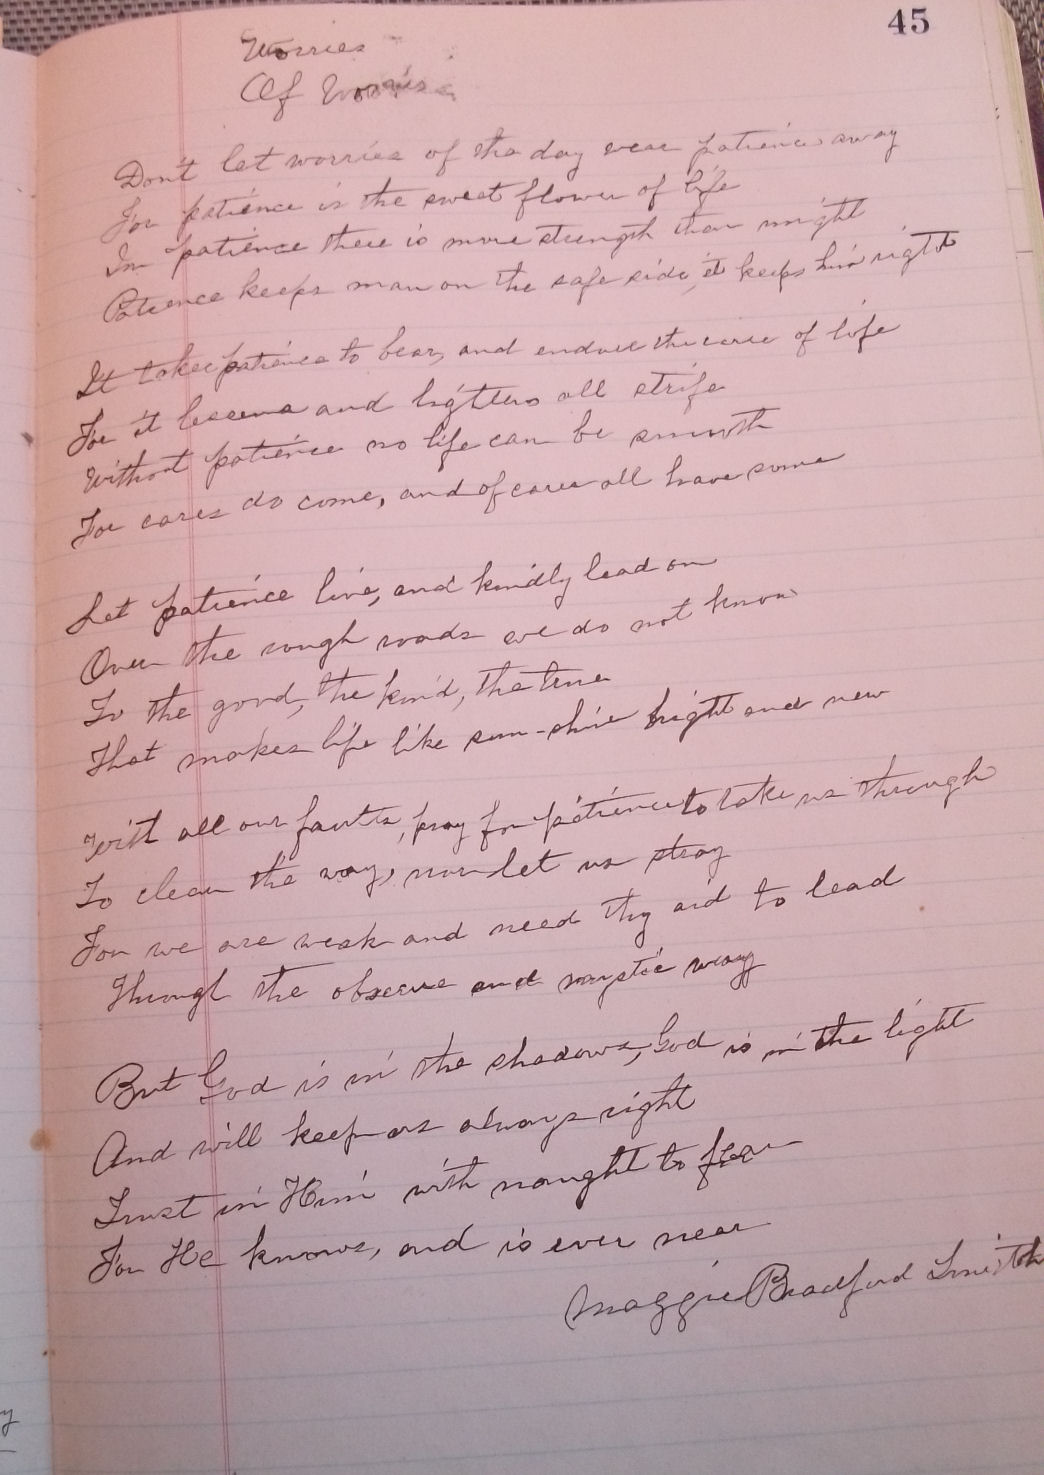 45
Worries
Of Worries
Don't let worries of the day wear patience away
For patience is the sweet flower of life
In patience there is more strength than might
Patience keeps man on the safe side, it keeps him right
It takes patience to bear, and endure the cares of life
For it lessens and lightens all strife
Without patience no life can be smooth
For cares do come, and of cares all have some
Let patience live, and kindly lead on
Over the rough roads we do not know
To the good, the kind, the true
That makes life like sun-shine bright and new
With all our faults, pray for patience to take us through
To clear the way, nor let us stray
For we are weak and need thy aid to lead
Through the obscure and mystic way
But God is in the shadows, God is in the light
And will keep us always right
Trust in Him with naught to fear
For He knows, and is ever near
Maggie Bradford Smith
y